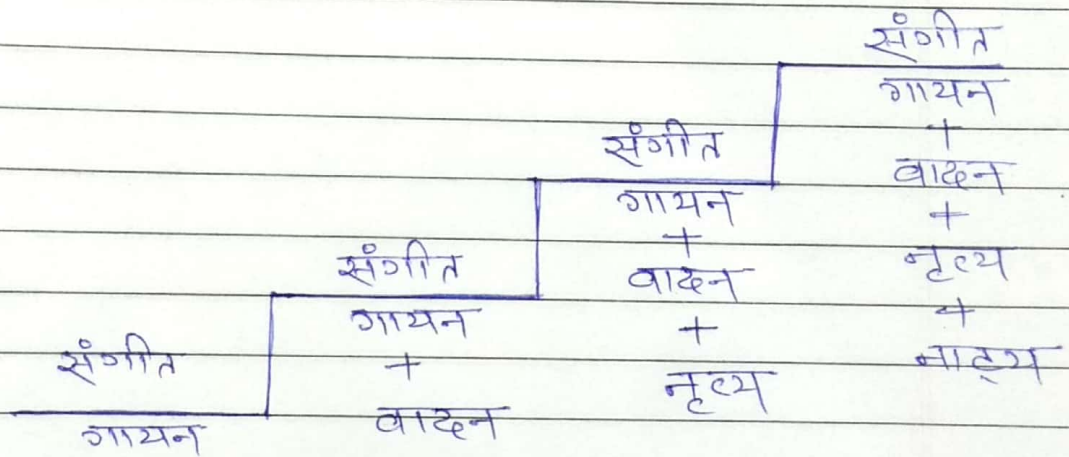 संगीत
गायन
संगीत
गायन
+
वादन
संगीत
गायन
+
वादन
+
नृत्य
संगीत
गायन
+
वादन
+
नृत्य
+
नाट्य